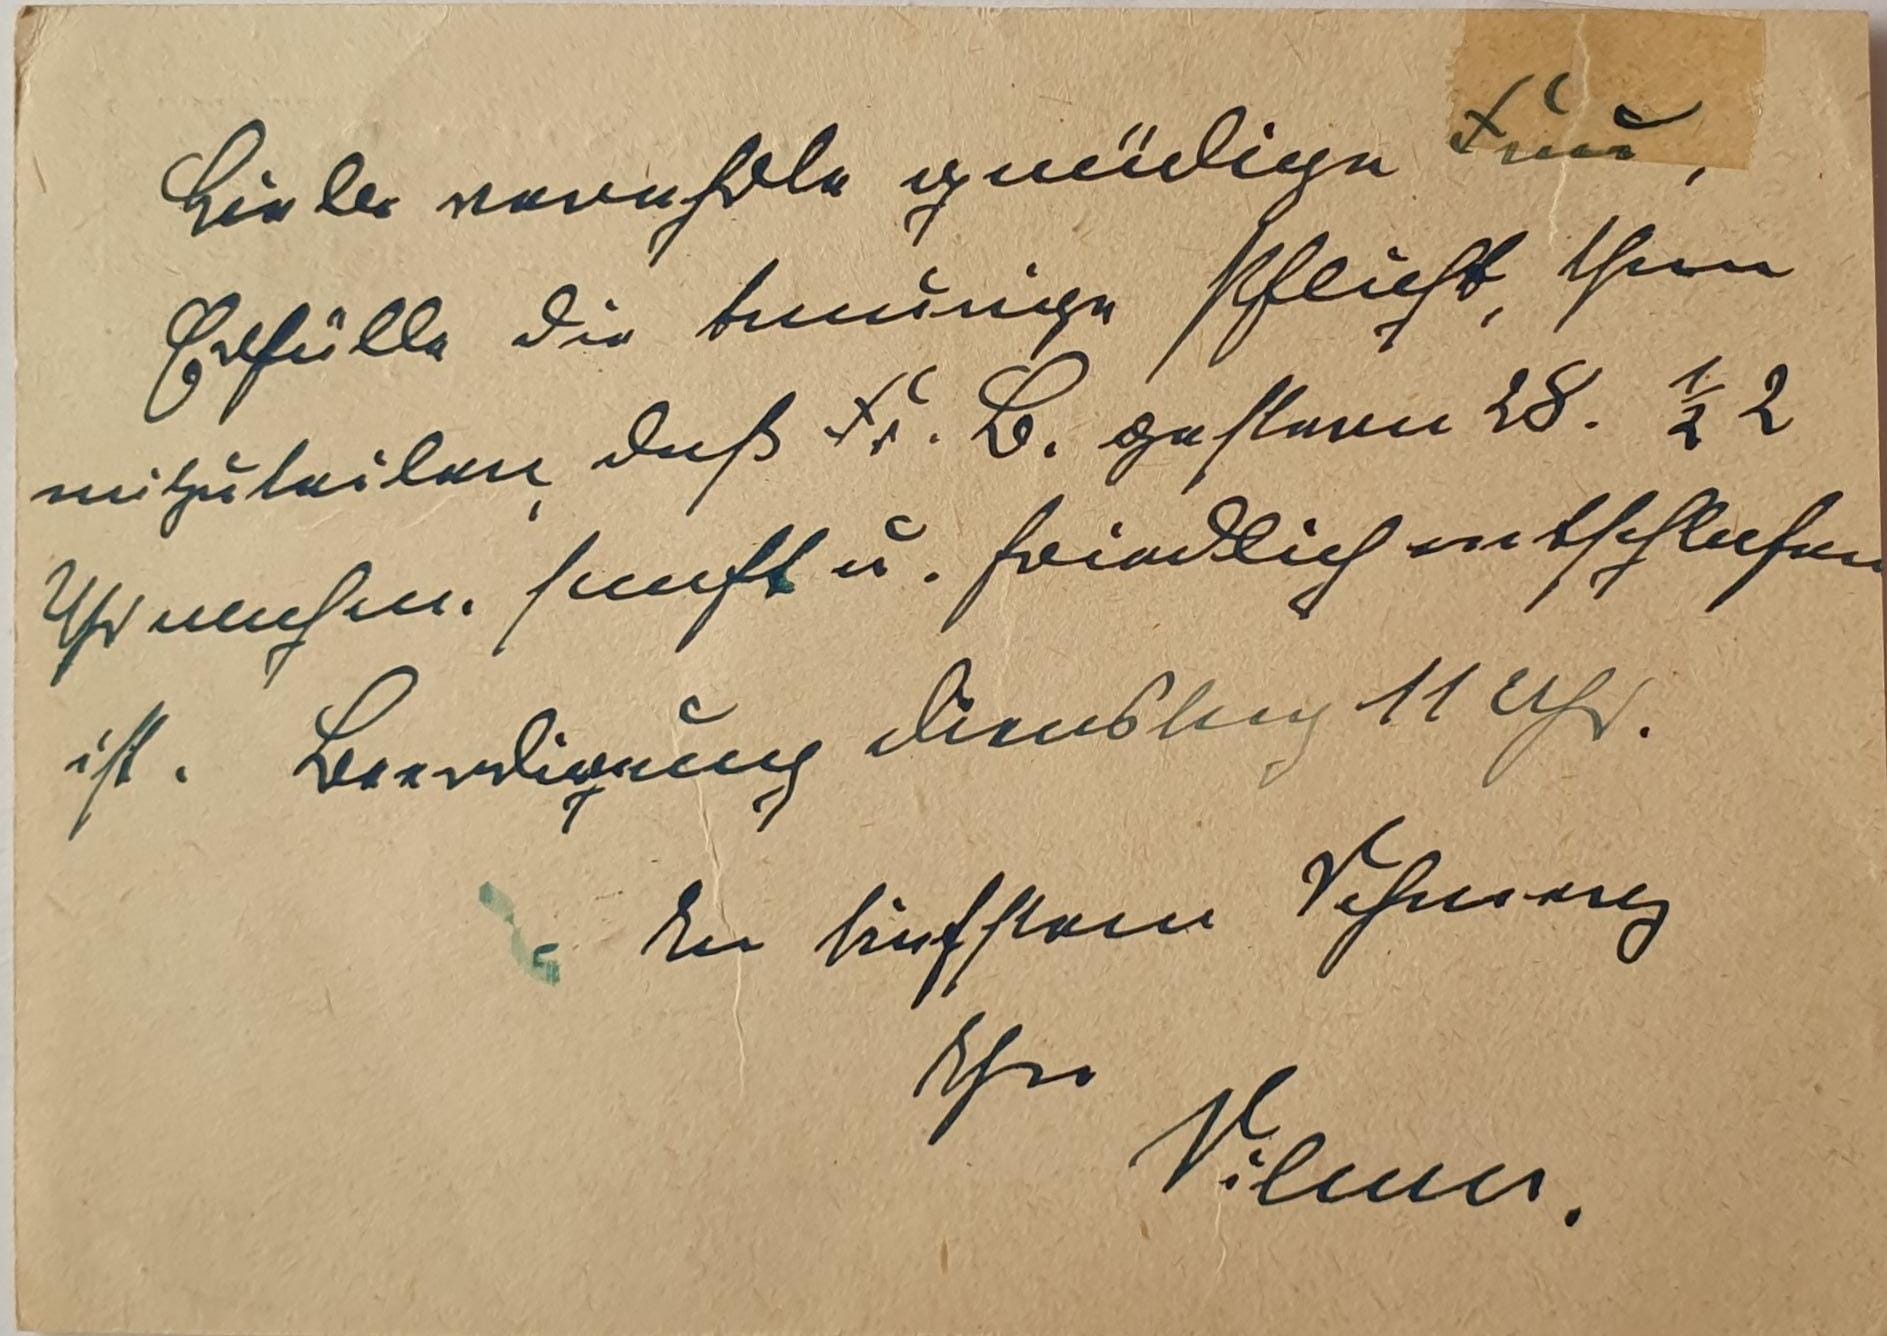 Liebe verehrte gnädige Frau,
Erfülle die traurige Pflicht, Ihnen
mitzuteilen, daß Fr. B. gestern 28. ½ 2
Uhr nachm. sanft u. friedlich entschlafen
ist. Beerdigung Dienstag 11 Uhr.
In tiefstem Schmerz
Ihre